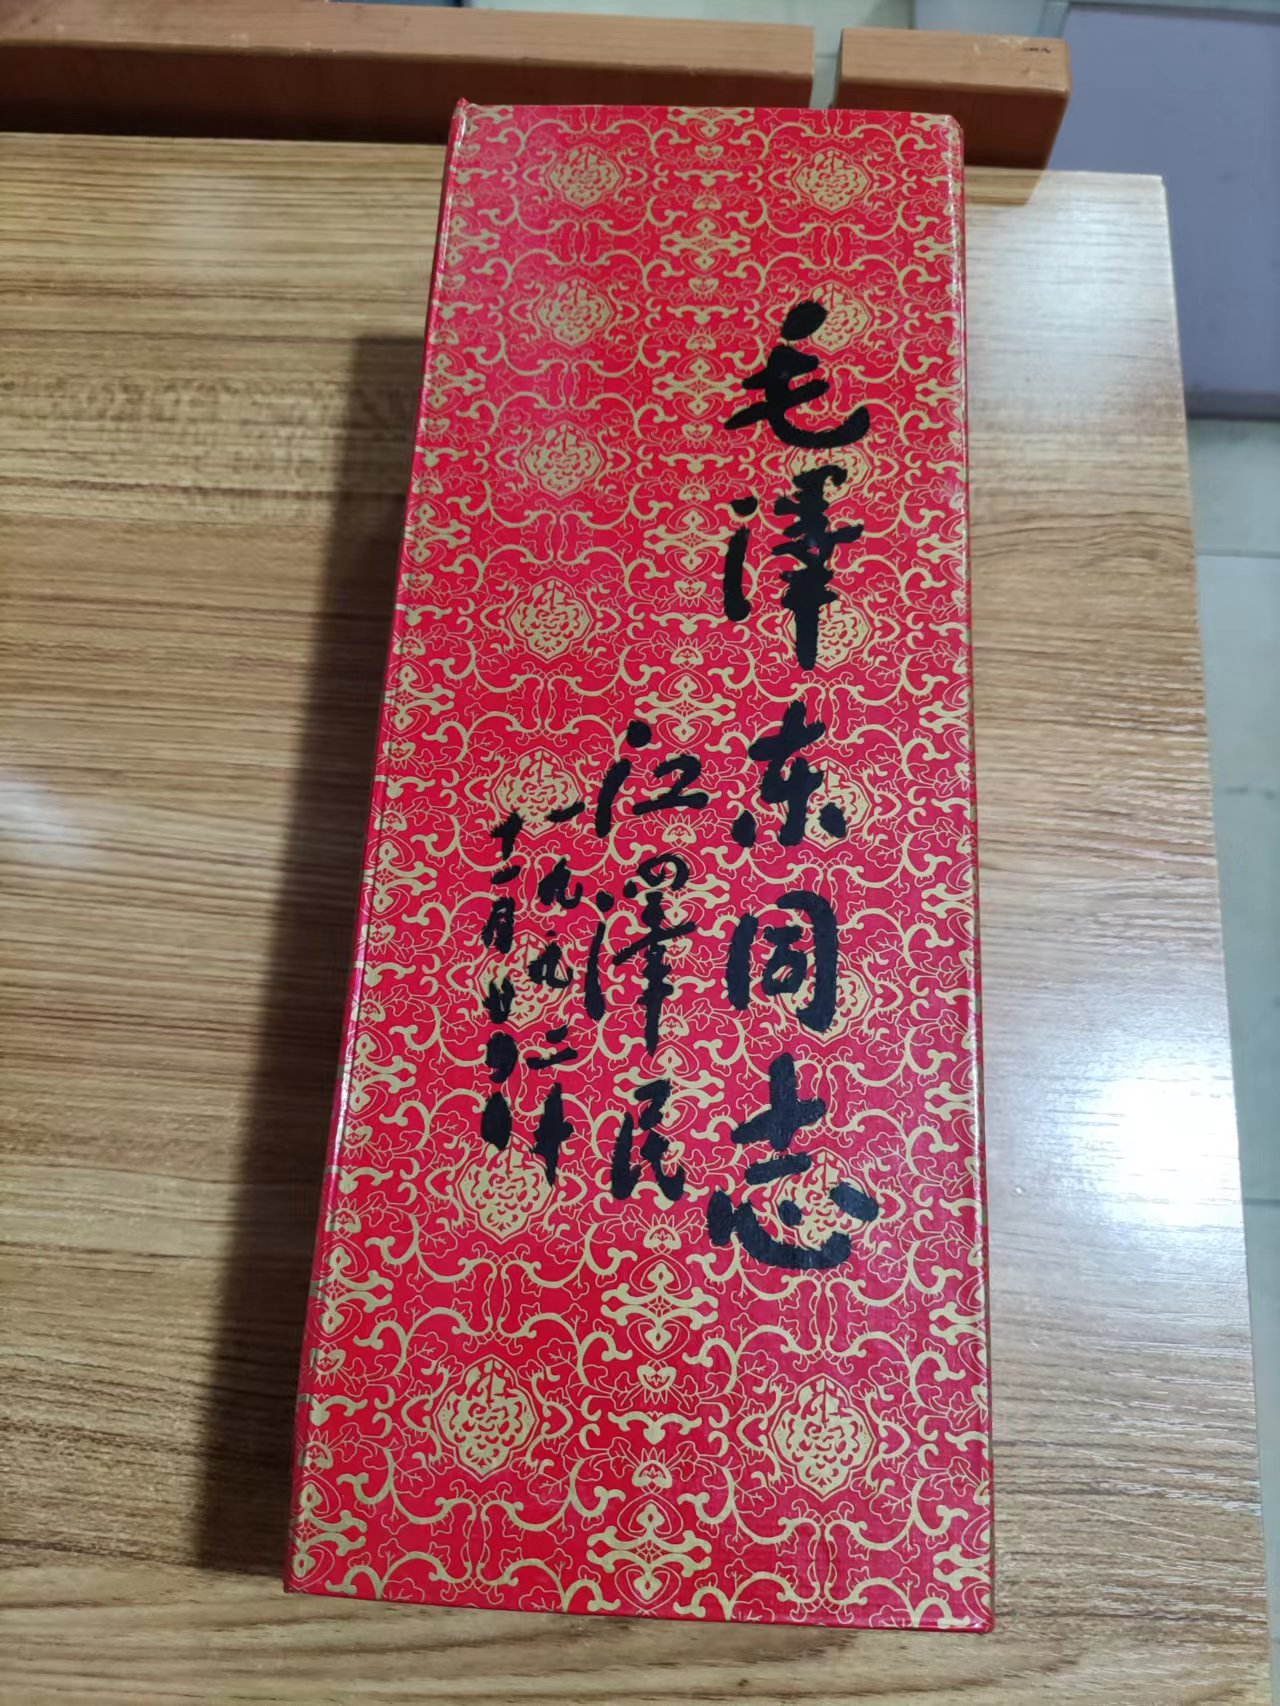 毛泽东同志
江泽民
一九九二年
十二月廿日